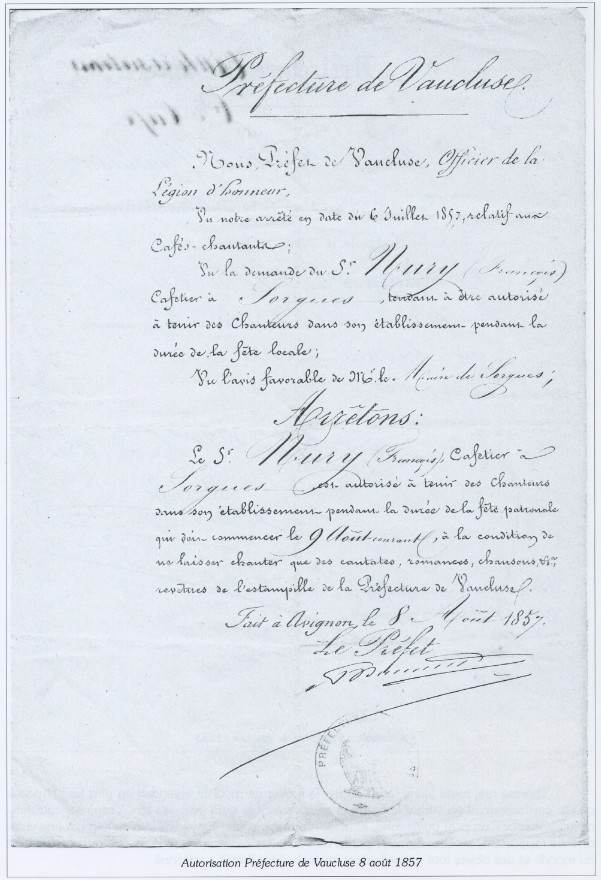 Préfecture de Vaucluse.
Nous, Préfet de Vaucluse, Officier de la
Légion d'honneur,
Vu notre arrêté en date du 6 Juillet 1857, relatif aux
Cafés-chantants;
Vu la demande du Sr. Nury (François)
Cafetier à Sorgues, tendant à être autorisé
à tenir des Chanteurs dans son établissement pendant la
durée de la fête locale;
Vu l'avis favorable de Mr. le Maire de Sorgues;
Arrêtons:
Le Sr. Nury (François), Cafetier à
Sorgues est autorisé à tenir des Chanteurs
dans son établissement pendant la durée de la fête patronale
qui doit commencer le 9 Août courant, à la condition de
ne laisser chanter que des cantates, romances, chansons, &a,
revêtues de l'estampille de la Préfecture de Vaucluse.
Fait à Avignon, le 8 Août 1857.
Le Préfet
Autorisation Préfecture de Vaucluse 8 août 1857